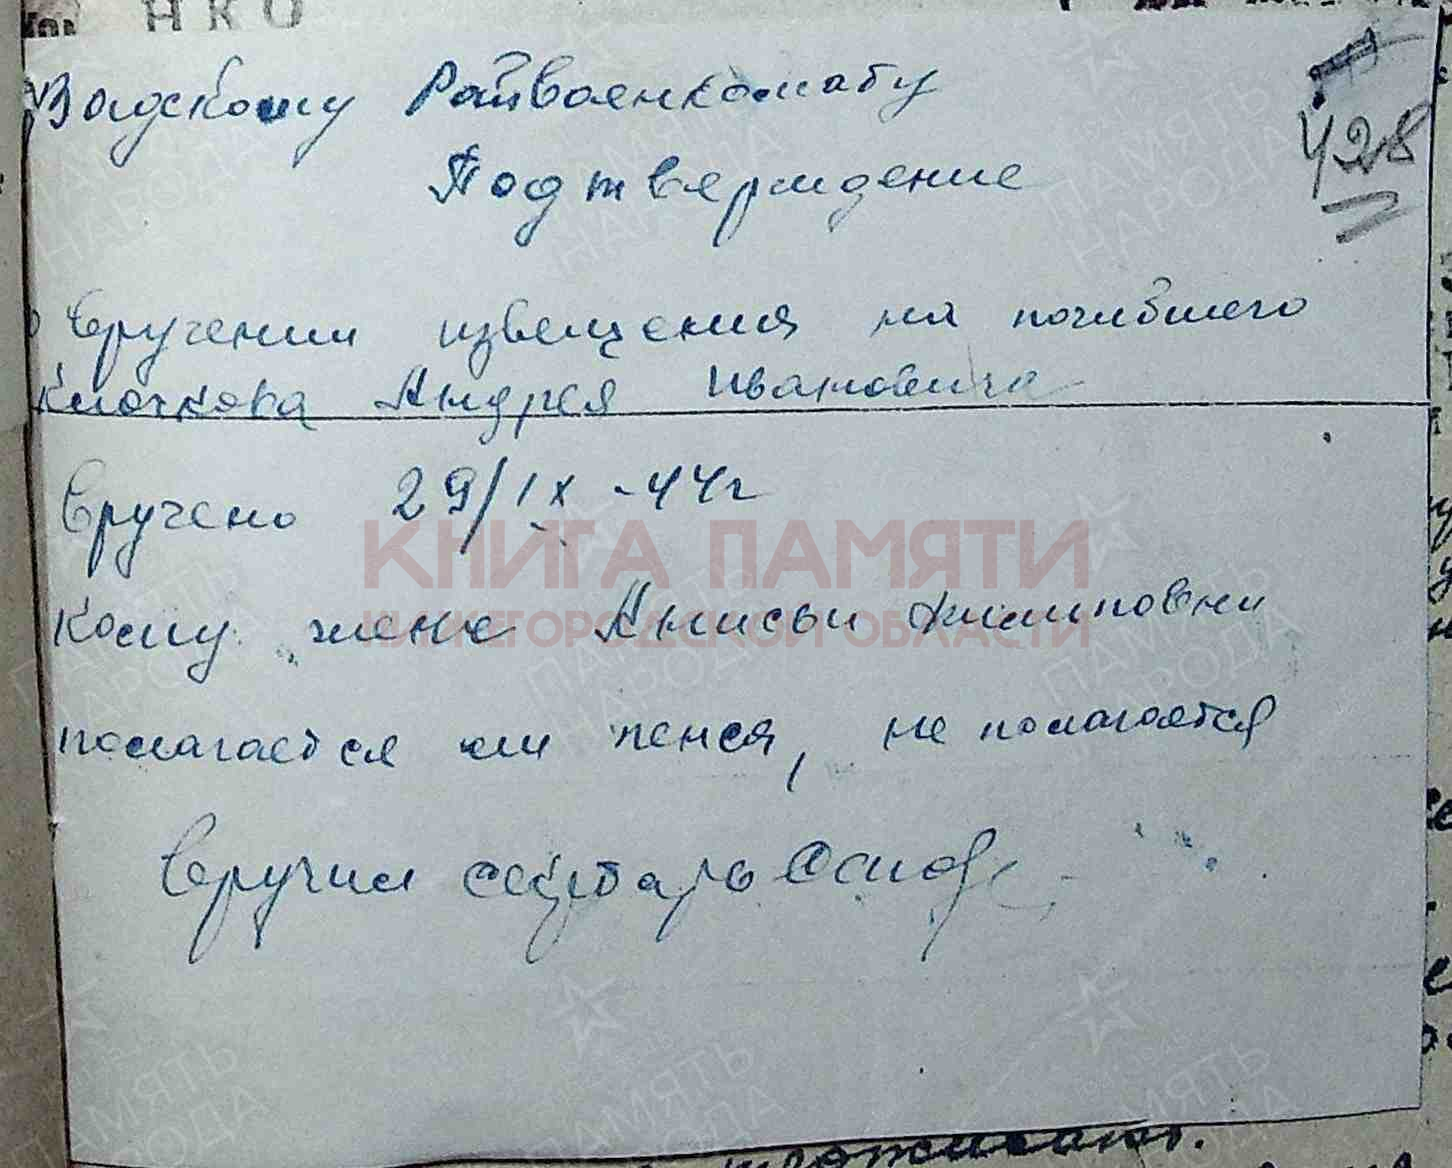 НКО
Вадскому Райвоенкомату
428
Подтверждение
о вручении извещения на погибшего
Клочкова Андрея Ивановича
Вручено 29/IX -44г
КНИГА ПАМЯТИ
Кому жене Анисьи Филиповни
НИЖЕГОРОДСКОЙ ОБЛАСТИ
полагается или пенся, не полагается
Вручил секретарь
ПАМЯТЬ
НАРОДА